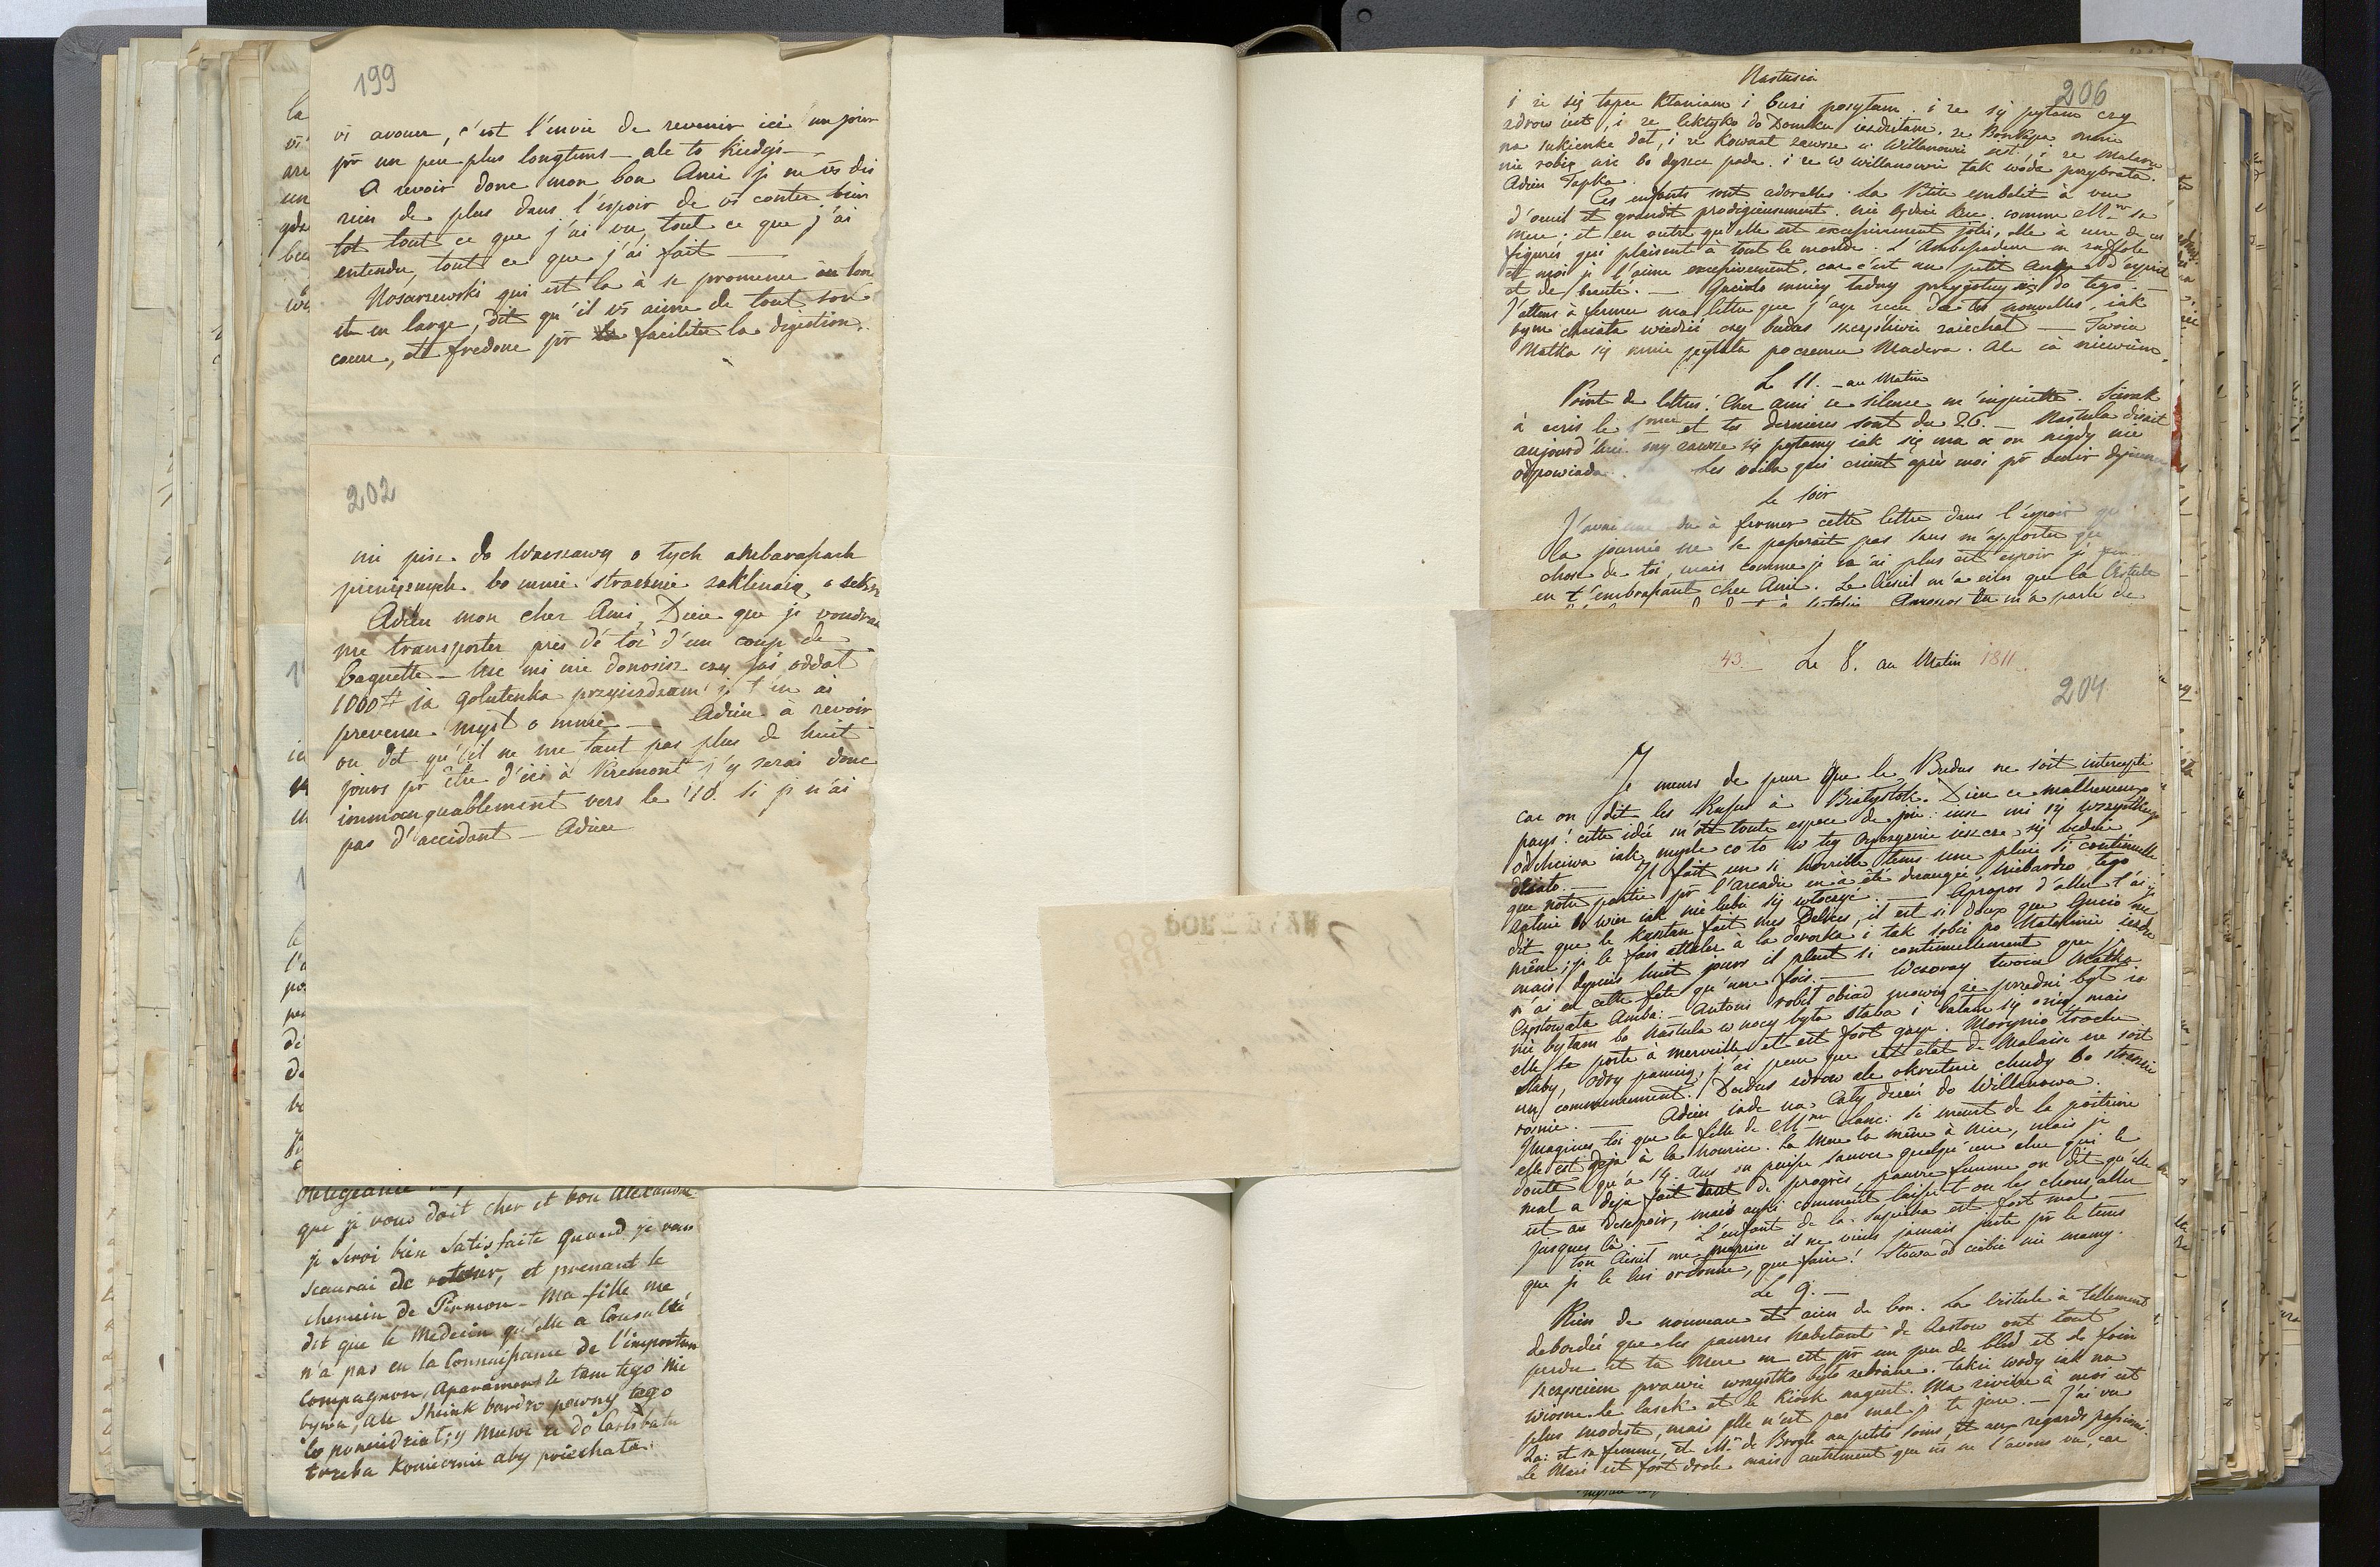 199
vs avouer, c'est l'envie de revenir ici un jour
pr un peu plus longtems — ale to kiedyś —
A revoir donc mon bon Ami je ne vs dis
rien de plus dans l'espoir de vs conter bien
tot tout ce que j'ai vu, tout ce que j'ai
entendu, tout ce que j'ai fait —
Kosarzewski qui est là à se promener en long
et en large, dit qu'il vs aime de tout son
coeur, et fredone pr faciliter la digestion.
202
nie pisz do Warszawy o tych ambarasach
pieniężnych bo mnie strasznie zaklinaią o sekr
Adieu mon cher Ami, Dieu que je voudrai
me transporter près de toi d'un coup de
baguette — Nic mi nie donosisz czy Jaś oddał
1000# ia golutenka przyieżdzam je t'en ai
prevenu. myśl o mnie — Adieu à revoir
on dit qu'il ne me faut pas plus de huit
jours pr être d'ici à Piremont j'y serai donc
immanquablement vers le 10. si je n'ai
pas d'accident — Adieu
obligeance
que je vous doit cher et bon Alexandre
je serai bien satisfaite quand je vous
scaurai de retour, et prenant le
chemin de Pirmon — Ma fille me
dit que le Medecin qu'elle a Consulté
n'a pas eu la Connaissance de l'important
compagnon, Aparament ze tam tego nie
bywa, ale bardzo pewny tego
co powiedział; y muwi ze do Carlsbadu
trzeba koniecznie aby poiechała.
Nastusia
206
i że się tapce kłaniam i buzi posyłam. i ze się pytam czy
zdrow iest, i ze lektyko do Domku iezdziłam. ze Bonkapa mnie
na sukienke dał, i ze Kownat zawsze w Willanowie iest, i ze Malarze
nie robią nic bo dyszcz pada. i ze w willanowie tak woda przybrała.
Adieu Tapka.
Ces enfants sont adorables. La Petite embelit à vue
d'oeuil et grandit prodigieusement. nie będzie kuc. comme Mme sa
mere. et en outre qu'elle est excessivement jolie, elle a une de ces
figures qui plaisent à tout le monde. L'Ambassadeur en raffole
et moi je l'aime excessivement, car c'est un petit ange d'esprit
et de beauté. — Gucio mniey ładny do tego —
J'attens à fermer ma lettre que j'aye reçu de tes nouvelles, iak
bym chciała wiedzić czy budas szczęśliwie zaiechał — Twoia
Matka się mnie pytała poczemu Madera. Ale ia niewiem.
Le 11. — au Matin
Point de lettres! Cher ami ce silence m'inquiette. Sierak
à ecris le et tes dernieres sont du 26. — Nastula disait
aujourd'hui my zawsze się pytamy iak się ma a on nigdy nie
odpowiada. Les voila qui crient après moi pr venir dejeuner
Le Soir
à fermer cette lettre dans l'espoir
la journée ne se passerait pas sans m'apporter
chose de toi, mais comme je n'ai plus cet espoir je
en t'embrassant cher Ami. Le m'a ecrit que la Vistule
43. Le 8. au Matin 1811
204
Je meurs de peur que le Budas ne soit intercepté
car on dit les Russes à Białystok. Dieu ce malheureux
pays! cette idée m'ôte toute espece de joie. insze mi się wszystkiego
odchciwa iak mysle co to w tey Oyczyznie ieszcze się będzie
działo. — Il fait un si horrible tems une pluie si continuelle
que notre partie pr l'Arcadie en a été derangée, niebardzo tego
załuie bo wiesz iak nie lubie się włoczyć. — Apropos d'aller t'ai je
dit que le Kasztan fait mes Delices, il est si doux que Gucio me
même; je le fais atteler à la doroszka i tak sobie po Natolinie iezdze
mais depuis huit jours il pleut si continuellement que je
n'ai eu cette fete qu'une fois. — Wczoray twoia Matka
Częstowała Amba: — Antoni robił obiad mowią ze przedni był ia
nie byłam bo Nastula w nocy była słaba i bałam się odry mais
elle se porte à merveille et est fort gaye. Morynio troche
słaby, odry panuią, j'ai peur que cet etat de Malaise ne soit
un commencement. Dudus zdrow ale okrutnie chudy bo strasznie
rosnie. — Adieu iade na Cały dzień do Willanowa.
Imagines toi que la fille de Mme Lanc: se meurt de la poitrine
elle est deja à la nourice. La Mere la mène à Nice, mais je
doute qu'à 14. ans on puisse sauver quelqu'un chez qui le
mal a deja fait tant de progrès, pauvre femme on dit qu'elle
est au desespoir, mais aussi comment laisse t-on les choses aller
jusques là. — L'enfant de la Sapieha est fort mal —
ton Assuel me meprise il ne viens jamais juste pr le tems
que je le lui ordonne, que faire! słowa od ciebie nie mamy.
Le 9. —
Rien de nouveau et rien de bon. La Vistule à tellement
debordée que les pauvres habitants de Zastow ont tout
perdu et ta Mere en est pr un peu de bled et de foin
szczęściem prawie wszystko było zebrane. takie wody iak na
wiosne le lasek et le kiosk nagent. Ma riviere à moi est
plus modeste, mais elle n'est pas mal je te jure. — J'ai vu
Za: et sa femme, et Mr de Brogle au petits soins, et aux regards passionés.
Le Mari est fort drole mais autrement que vs ne l'avons vu, car